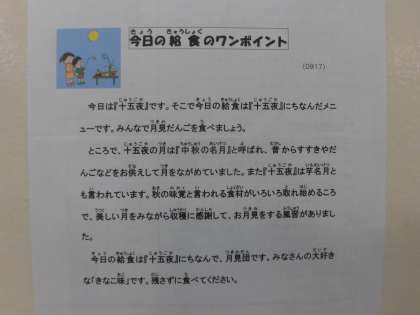 今日の給食のワンポイント
(0917)
今日は『十五夜』です。そこで今日の給食は『十五夜』にちなんだメニ
ューです。みんなで月見だんごを食べましょう。
ところで、十五夜の月は『中秋の名月』と呼ばれ、昔からすすきやだ
んごなどをお供えして月をながめていました。また『十五夜』は芋名月と
も言われています。秋の味覚と言われる食材がいろいろ取れ始めるころ
で、美しい月をみながら収穫に感謝して、お月見をする風習がありまし
た。
今日の給食は『十五夜』にちなんで、月見団です。みなさんの大好き
な「きなこ味」です。残さずに食べてください。